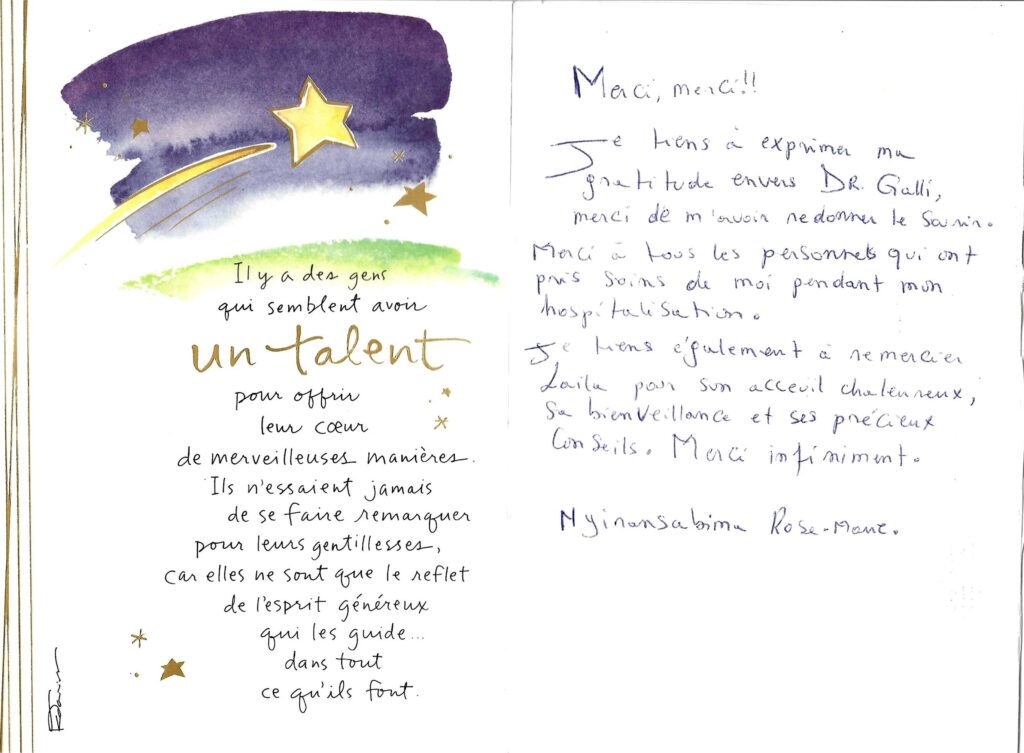 Il y a des gens
qui semblent avoir
un talent
pour offrir
leur cœur
de merveilleuses manières.
Ils n'essaient jamais
de se faire remarquer
pour leurs gentillesses,
car elles ne sont que le reflet
de l'esprit généreux
qui les guide...
dans tout
ce qu'ils font.
Merci, merci!!
Je tiens à exprimer ma
gratitude envers DR. Galli,
merci de m'avoir redonner le sourir.
Merci à tous les personnels qui ont
pris soins de moi pendant mon
hospitalisation.
Je tiens également à remercier
Laila pour son acceuil chaleureux,
sa bienveillance et ses précieux
conseils. Merci infiniment.
Nyiransabima Rose-Marie.